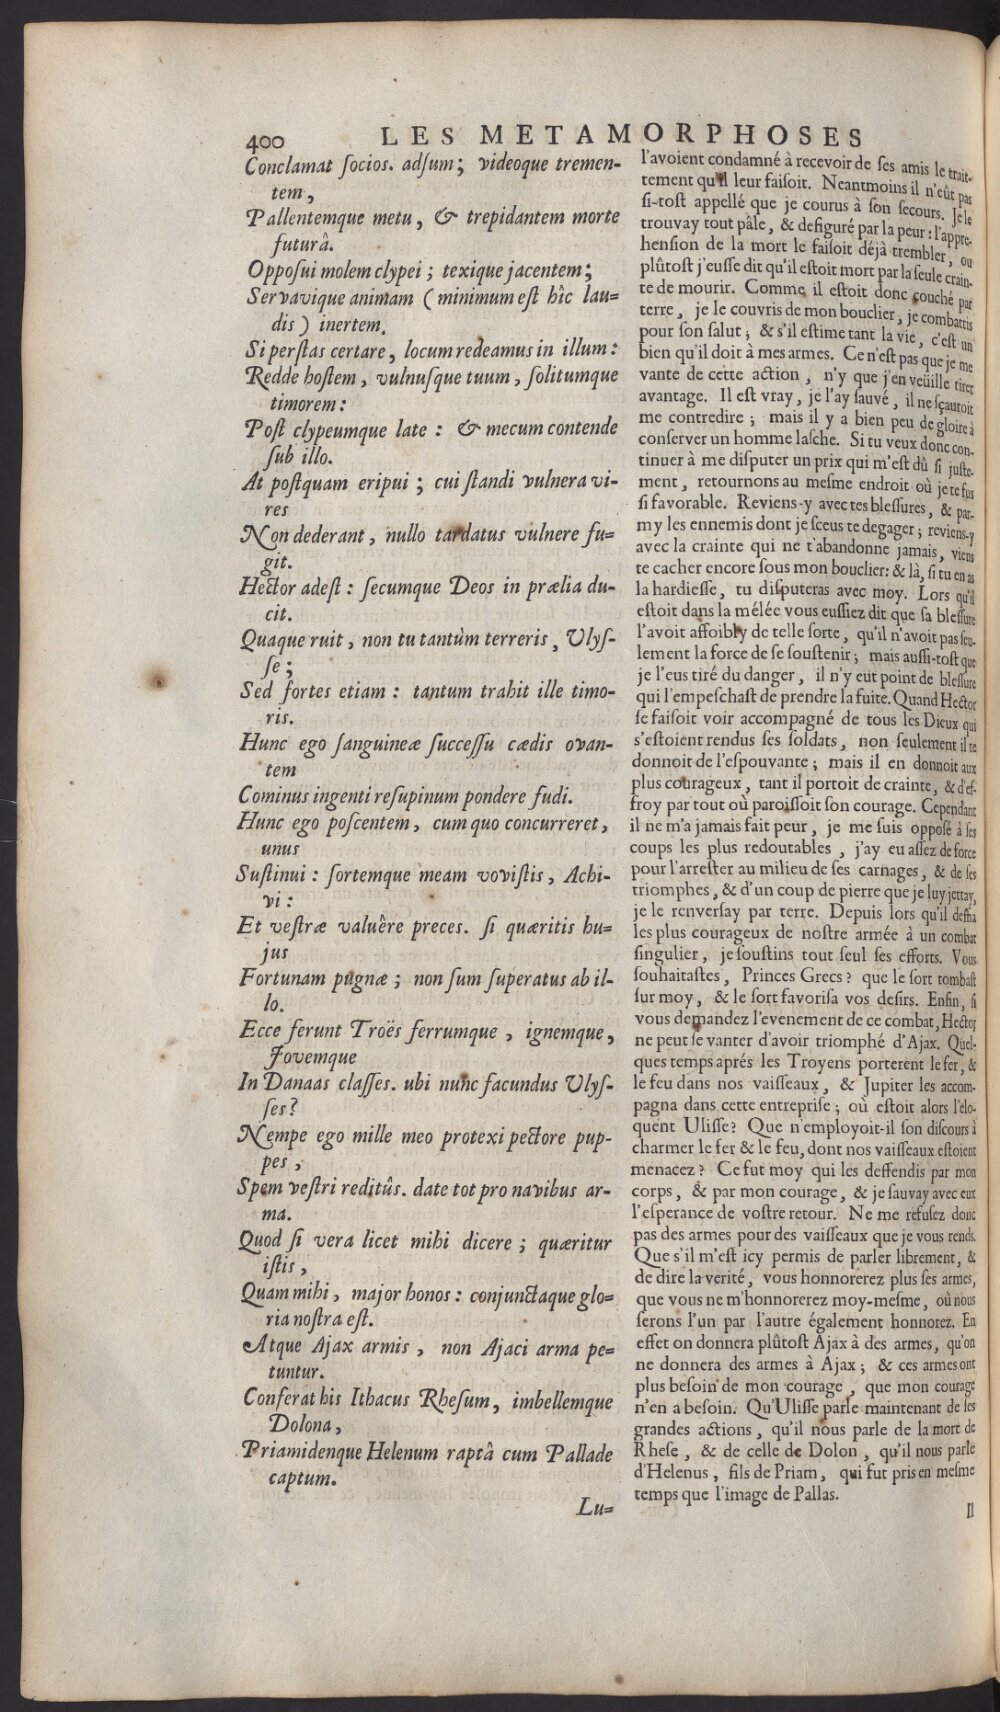 400
LES METAMORPHOSES
Conclamat ſocios. adſum; videoque tremen-
tem,
Pallentemque metu, & trepidantem morte
futurâ.
Oppoſui molem clypei; texique jacentem;
Servavique animam (minimum eſt hîc lau-
dis) inertem.
Si perſtas certare, locum redeamus in illum:
Redde hoſtem, vulnuſque tuum, ſolitumque
timorem:
Poſt clypeumque late: & mecum contende
ſub illo.
At poſtquam eripui; cui ſtandi vulnera vi-
res
Non dederant, nullo tardatus vulnere fu-
git.
Hector adeſt: ſecumque Deos in prælia du-
cit.
Quaque ruit, non tu tantùm terreris, Ulyſ-
ſe;
Sed fortes etiam: tantum trahit ille timo-
ris.
Hunc ego ſanguineæ ſucceſſu cædis ovan-
tem
Cominus ingenti reſupinum pondere fudi.
Hunc ego poſcentem, cum quo concurreret,
unus
Suſtinui: ſortemque meam voviſtis, Achi-
vi:
Et veſtræ valuêre preces. ſi quæritis hu-
jus
Fortunam pugnæ; non ſum ſuperatus ab il-
lo.
Ecce ferunt Troës ferrumque, ignemque,
Jovemque
In Danaas claſſes. ubi nunc facundus Ulyſ-
ſes?
Nempe ego mille meo protexi pectore pup-
pes,
Spem veſtri reditûs. date tot pro navibus ar-
ma.
Quod ſi vera licet mihi dicere; quæritur
iſtis,
Quam mihi, major honos: conjunctaque glo-
ria noſtra eſt.
Atque Ajax armis, non Ajaci arma pe-
tuntur.
Conferat his Ithacus Rheſum, imbellemque
Dolona,
Priamidenque Helenum raptâ cum Pallade
captum.
Lu-
l'avoient condamné à recevoir de ſes amis le trait-
tement qu'il leur faiſoit. Neantmoins il n'eût pas
ſi-toſt appellé que je courus à ſon ſecours. Je le
trouvay tout pâle, & defiguré par la peur: l'appre-
henſion de la mort le faiſoit déjà trembler, ou
plûtoſt j'euſſe dit qu'il eſtoit mort par la ſeule crain-
te de mourir. Comme il eſtoit donc couché par
terre, je le couvris de mon bouclier, je combattis
pour ſon ſalut; & s'il eſtime tant la vie, c'eſt un
bien qu'il doit à mes armes. Ce n'eſt pas que je me
vante de cette action, n'y que j'en veüille tirer
avantage. Il eſt vray, je l'ay ſauvé, il ne ſçauroit
me contredire; mais il y a bien peu de gloire à
conſerver un homme laſche. Si tu veux donc con-
tinuer à me diſputer un prix qui m'eſt dû ſi juſte-
ment, retournons au meſme endroit où je te fus
ſi favorable. Reviens-y avec tes bleſſures, & par-
my les ennemis dont je ſceus te degager; reviens-y
avec la crainte qui ne t'abandonne jamais, viens
te cacher encore ſous mon bouclier: & là, ſi tu en as
la hardieſſe, tu diſputeras avec moy. Lors qu'il
eſtoit dans la mêlée vous euſſiez dit que ſa bleſſure
l'avoit affoibly de telle ſorte, qu'il n'avoit pas ſeu-
lement la force de ſe ſouſtenir; mais auſſi-toſt que
je l'eus tiré du danger, il n'y eut point de bleſſure
qui l'empeſchaſt de prendre la fuite. Quand Hector
ſe faiſoit voir accompagné de tous les Dieux qui
s'eſtoient rendus ſes ſoldats, non ſeulement il te
donnoit de l'eſpouvante; mais il en donnoit aux
plus courageux, tant il portoit de crainte, & d'ef-
froy par tout où paroiſſoit ſon courage. Cependant
il ne m'a jamais fait peur, je me ſuis oppoſé à ſes
coups les plus redoutables, j'ay eu aſſez de force
pour l'arreſter au milieu de ſes carnages, & de ſes
triomphes, & d'un coup de pierre que je luy jettay,
je le renverſay par terre. Depuis lors qu'il deffia
les plus courageux de noſtre armée à un combat
ſingulier, je ſouſtins tout ſeul ſes efforts. Vous
ſouhaitaſtes, Princes Grecs? que le ſort tombaſt
ſur moy, & le ſort favoriſa vos deſirs. Enfin, ſi
vous demandez l'evenement de ce combat, Hector
ne peut ſe vanter d'avoir triomphé d'Ajax. Quel-
ques temps aprés les Troyens porterent le fer, &
le feu dans nos vaiſſeaux, & Jupiter les accom-
pagna dans cette entrepriſe; où eſtoit alors l'élo-
quent Uliſſe? Que n'employoit-il ſon diſcours à
charmer le fer & le feu, dont nos vaiſſeaux eſtoient
menacez? Ce fut moy qui les deffendis par mon
corps, & par mon courage, & je ſauvay avec eux
l'eſperance de voſtre retour. Ne me refuſez donc
pas des armes pour des vaiſſeaux que je vous rends.
Que s'il m'eſt icy permis de parler librement, &
de dire la verité, vous honnorerez plus ſes armes,
que vous ne m'honnorerez moy-meſme, où nous
ſerons l'un par l'autre également honnorez. En
effet on donnera plûtoſt Ajax à des armes, qu'on
ne donnera des armes à Ajax; & ces armes ont
plus beſoin de mon courage, que mon courage
n'en a beſoin. Qu'Uliſſe parle maintenant de ſes
grandes actions, qu'il nous parle de la mort de
Rheſe, & de celle de Dolon, qu'il nous parle
d'Helenus, fils de Priam, qui fut pris en meſme
temps que l'image de Pallas.
Il